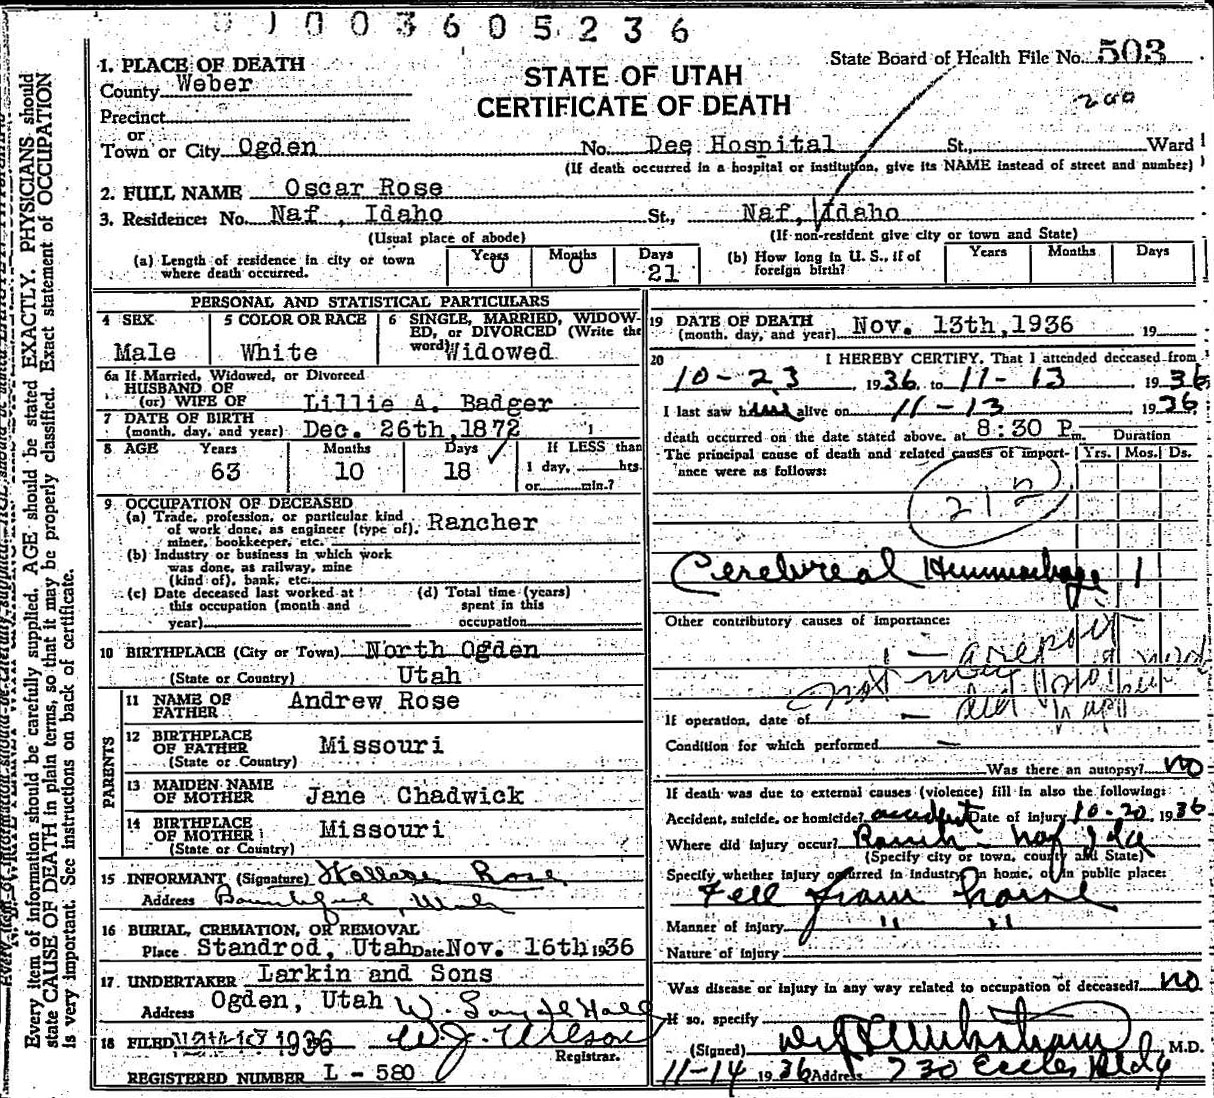 003605236
State Board of Health File No. 503
200
STATE OF UTAH
CERTIFICATE OF DEATH
1. PLACE OF DEATH
County Weber
Precinct
or
Town or City Ogden No. Dee Hospital St., Ward
(If death occurred in a hospital or institution, give its NAME instead of street and number)
2. FULL NAME Oscar Rose
3. Residence: No. Naf, Idaho St., Naf, Idaho
(Usual place of abode) (If non-resident give city or town and State)
(a) Length of residence in city or town where death occurred. Years 0 Months 0 Days 21
(b) How long in U. S., if of foreign birth? Years Months Days
PERSONAL AND STATISTICAL PARTICULARS
4 SEX Male
5 COLOR OR RACE White
6 SINGLE, MARRIED, WIDOW-
ED, or DIVORCED (Write the
word) Widowed
6a If Married, Widowed, or Divorced
HUSBAND OF
(or) WIFE OF Lillie A. Badger
7 DATE OF BIRTH
(month, day, and year) Dec. 26th, 1872
8 AGE Years 63 Months 10 Days 18 ✓
If LESS than
1 day, hrs.
or min.?
9 OCCUPATION OF DECEASED
(a) Trade, profession, or particular kind
of work done, as engineer (type of), Rancher
miner, bookkeeper, etc.
(b) Industry or business in which work
was done, as railway, mine
(kind of), bank, etc.
(c) Date deceased last worked at
this occupation (month and
year)
(d) Total time (years)
spent in this
occupation
10 BIRTHPLACE (City or Town) North Ogden
(State or Country) Utah
PARENTS
11 NAME OF
FATHER Andrew Rose
12 BIRTHPLACE
OF FATHER Missouri
(State or Country)
13 MAIDEN NAME
OF MOTHER Jane Chadwick
14 BIRTHPLACE
OF MOTHER Missouri
(State or Country)
15 INFORMANT (Signature) Wallace Rose
Address Bountiful, Utah
16 BURIAL, CREMATION, OR REMOVAL
Place Standrod, Utah Date Nov. 16th 1936
17 UNDERTAKER Larkin and Sons
Address Ogden, Utah W. Hall
18 FILED 1936 W. J. Wilson
Registrar.
REGISTERED NUMBER L - 580
19 DATE OF DEATH
(month, day, and year) Nov. 13th, 1936 19
20 I HEREBY CERTIFY, That I attended deceased from
10-23, 1936, to 11-13 1936
I last saw him alive on 11-13 1936
death occurred on the date stated above, at 8:30 P m. Duration
The principal cause of death and related causes of import-
ance were as follows: Yrs. Mos. Ds.
212
Cerebreal Hemmorhage 1
Other contributory causes of importance:
If operation, date of —
Condition for which performed —
Was there an autopsy? no
If death was due to external causes (violence) fill in also the following:
Accident, suicide, or homicide? accident Date of injury 10-20, 1936
Where did injury occur? Ranch - Naf Ida
(Specify city or town, county and State)
Specify whether injury occurred in industry, in home, or in public place:
Fell from horse
Manner of injury " "
Nature of injury
Was disease or injury in any way related to occupation of deceased? no
If so, specify
(Signed) M.D.
11-14 1936 Address 730 Eccles Bldg
Every item of information should be carefully supplied. AGE should be stated EXACTLY. PHYSICIANS should
state CAUSE OF DEATH in plain terms, so that it may be properly classified. Exact statement of OCCUPATION
is very important. See instructions on back of certificate.